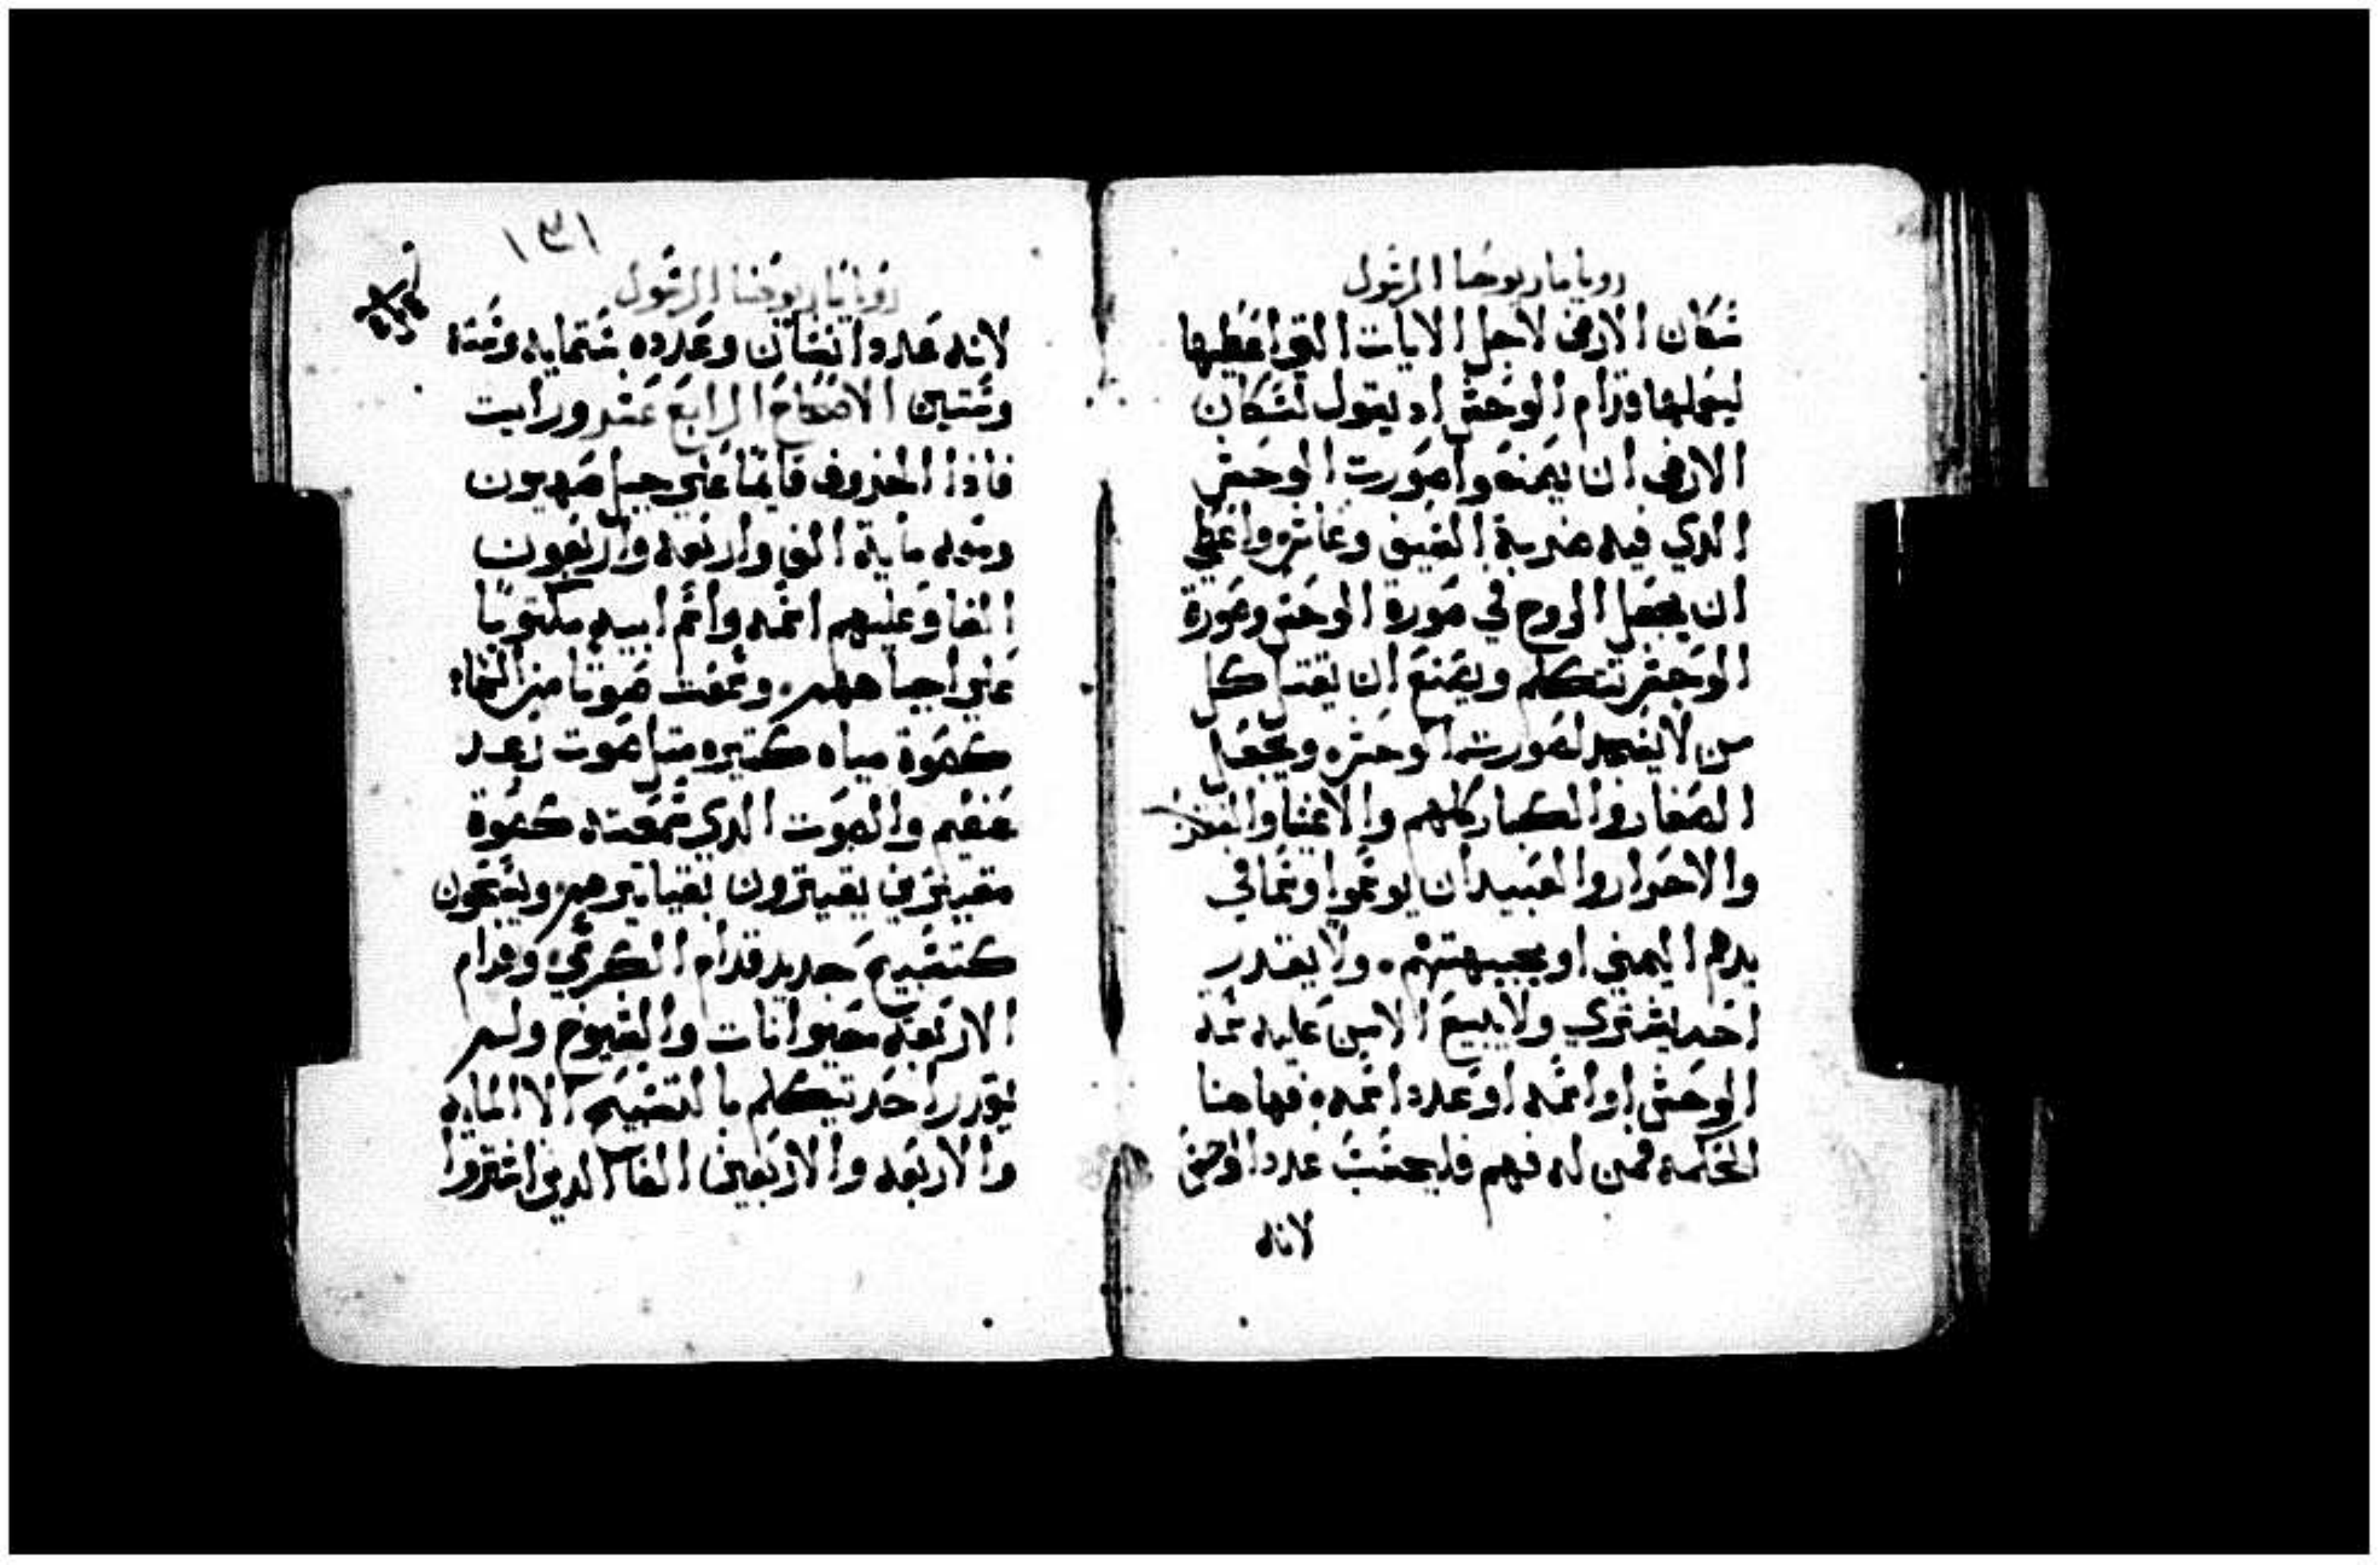 رويا مار يوحنا الرسول
سكان الارض لاجل الايات التي اعطيها
ليعملها قدام الوحش اد يقول لسكان
الارض ان يصنعوا صورت الوحش
الدي فيه ضربة السيف وعاش واعطي
ان يجعل الروح في صورة الوحش وصورة
الوحش تتكلم ويصنع ان يقتل كل
من لا يسجد لصورت الوحش ويجعل
الصغار والكبار كلهم والاغنيا والفقرا
والاحرار والعبيد ان يوسموا وسما في
يدهم اليمني او بجبهتهم ولا يقدر
احد يشتري ولا يبيع الا من عليه سمه
الوحش او اسمه او عدد اسمه فهاهنا
الحكمه فمن له فهم فليحسب عدد الوحش
لانه
١٣١
رويا مار يوحنا الرسول
لانه عدد انسان وعدده ستمايه وسته
وستين الاصحاح الرابع عشر ورايت
فاذا الخروف قايما على جبل صهيون
ومعه ماية الف واربعه واربعون
الفا وعليهم اسمه واسم ابيه مكتوبا
على اجباههم وسمعت صوتا من السما
كصوة مياه كتيره متل صوت رعد
عظيم والصوت الدي سمعته كصوة
مقيترين يقيترون بقياتيرهم ويسبحون
كتسبيح جديد قدام الكرسي وقدام
الاربعه حيوانات والشيوخ ولم
يقدر احد تيكلم بالتسبيح الا المايه
والاربعه والاربعين الفا الدين اشتروا